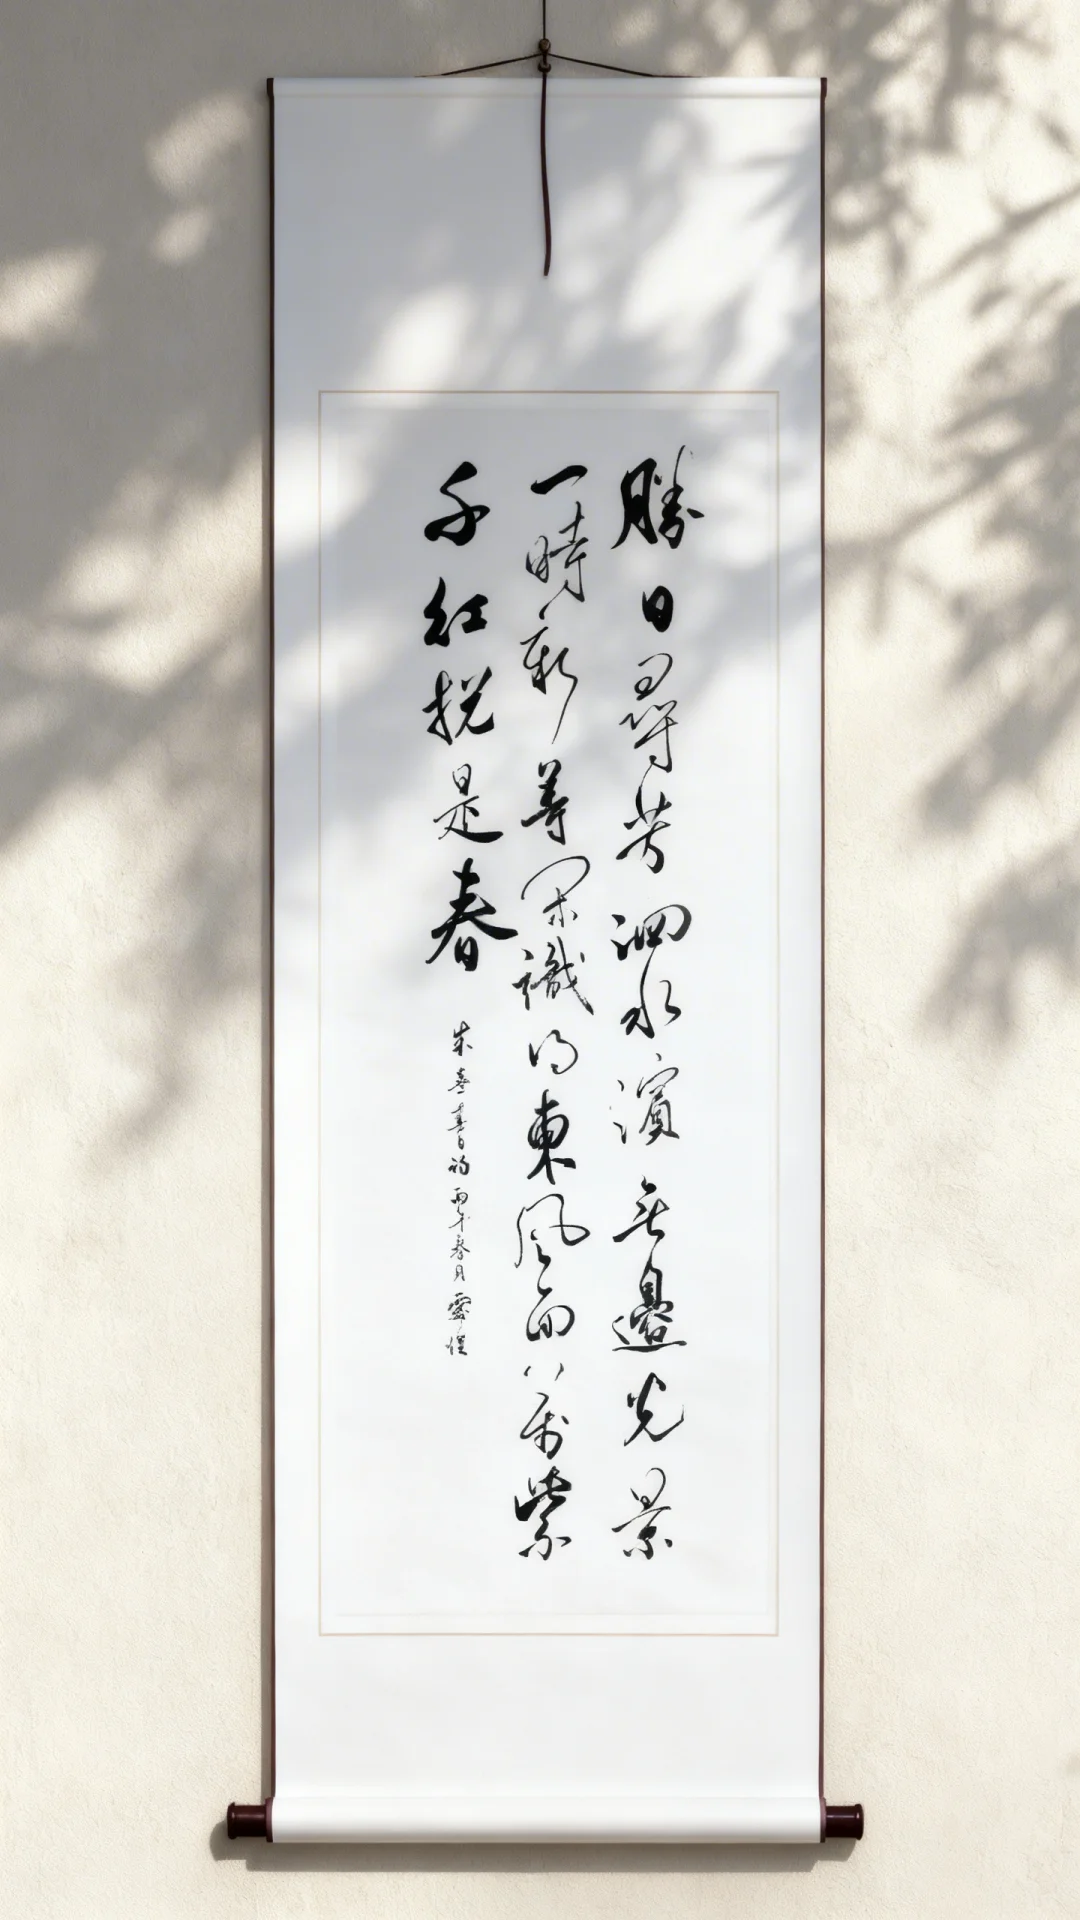 勝日尋芳泗水濱無邊光景
一時新等閑識得東風面萬紫
千紅捴是春
朱熹春日詩丙午春月